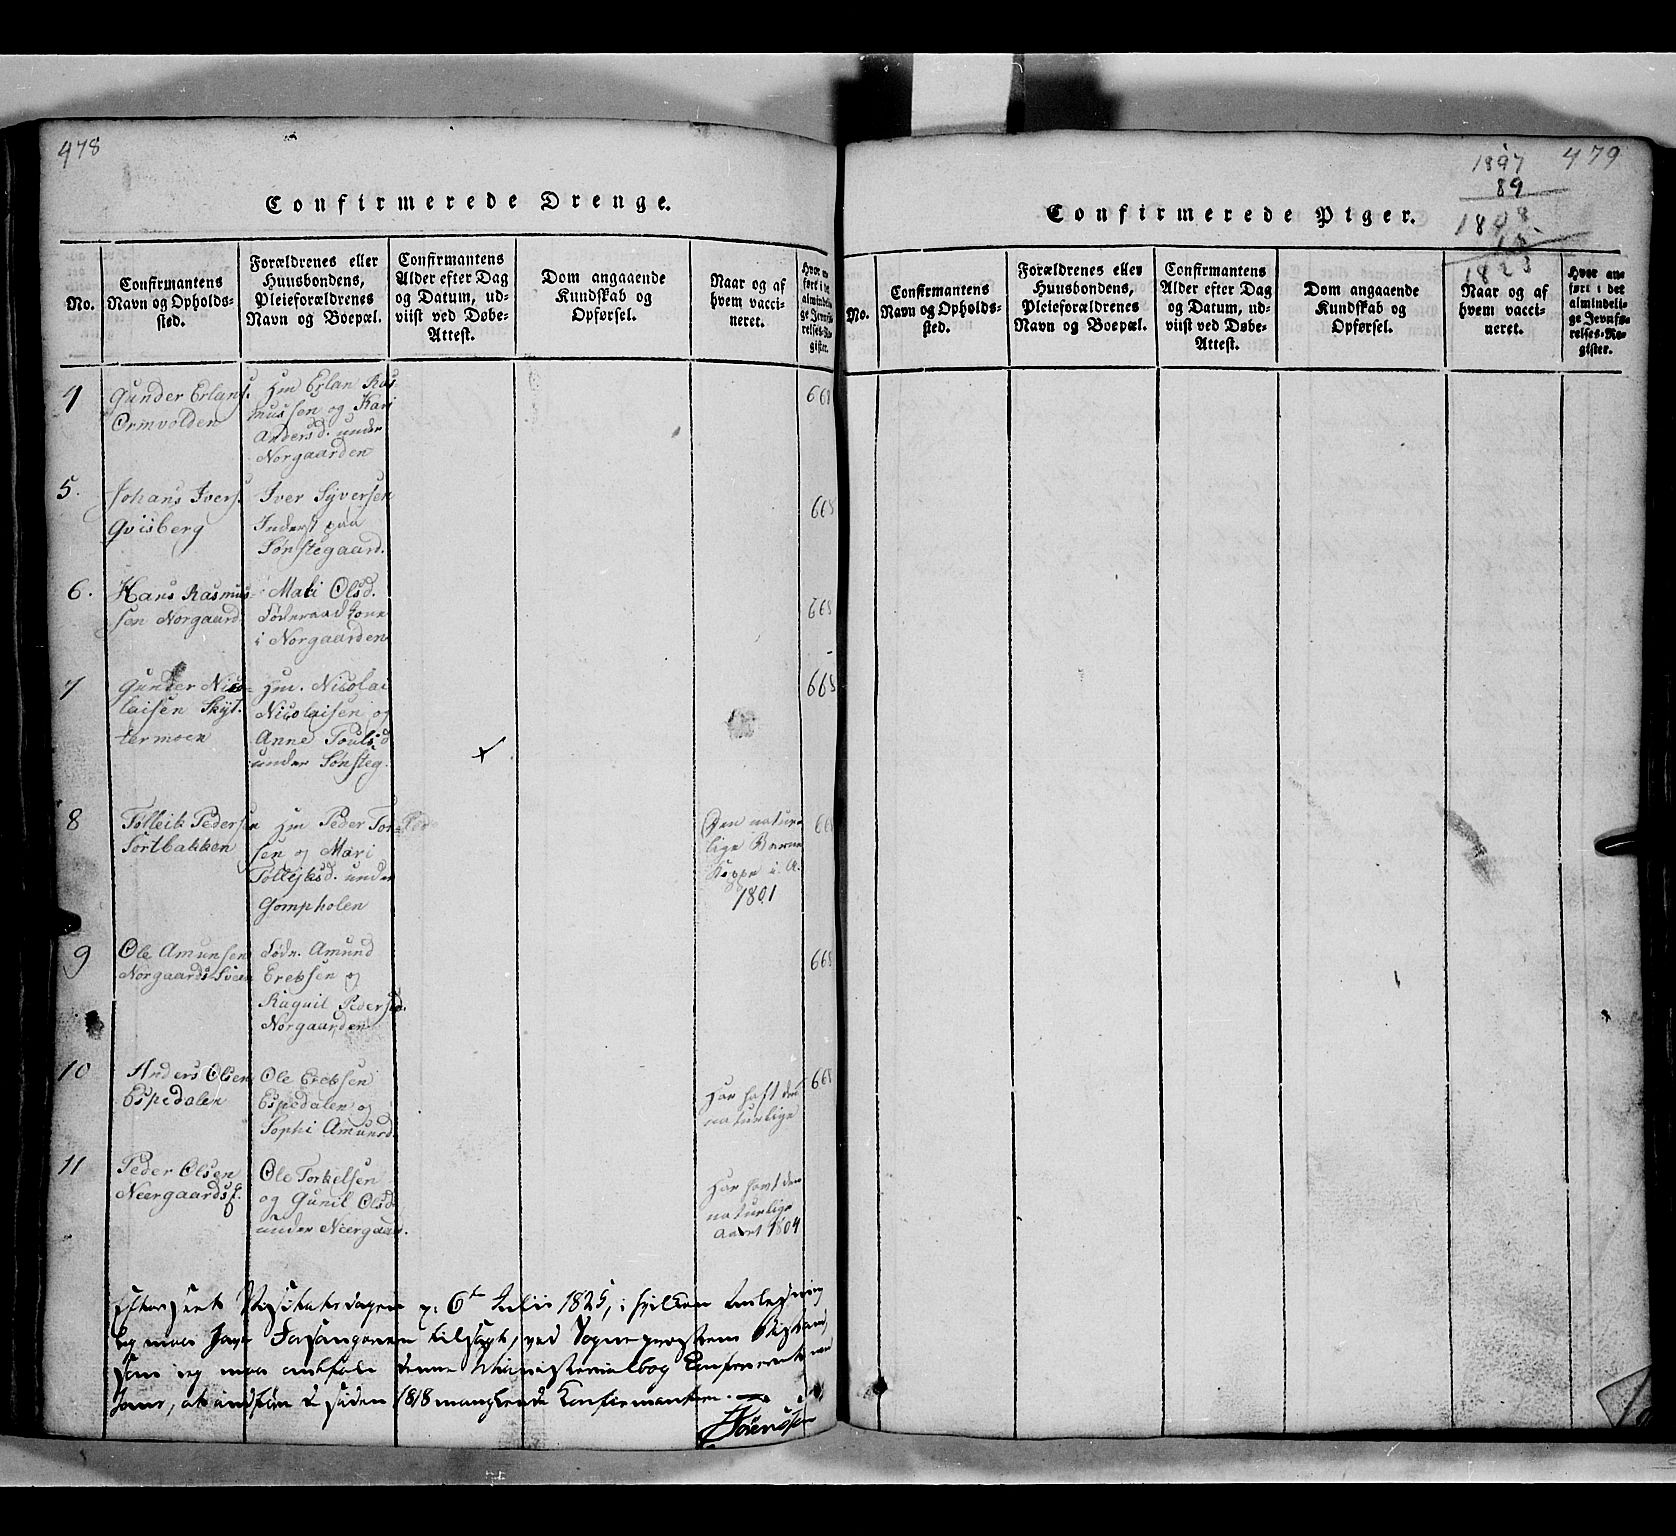 478
Confirmerede Drenge.
No.
Confirmantens
Navn og Opholds-
sted.
Forældrenes eller
Huusbondens,
Pleieforældrenes
Navn og Boepæl.
Confirmantens
Alder efter Dag
og Datum, ud-
viist ved Døbe-
Attest.
Dom angaaende
Kundskab og
Opførsel.
Naar og af
hvem vacci-
neret.
Hvor an-
ført i det
almindeli-
ge Jevnfø-
relses-Re-
gister.
4
Gunder Erlans.
Ormvolden
Hm Erlan Ras-
mussen og Kari
Andersd. under
Norgaarden
668
5.
Johans Ivers.
Qvisberg
Iver Syversen
Inderst paa
Sønstegaard.
668
6.
Hans Rasmus-
sen Norgaard
Mali Olsd.
Føderaad kone
i Norgaarden
668
7
Gunder Nico-
laisen Skyt-
termoen
Hm. Nicolai
Nicolaisen og
Anne Poulsd
under Sønsteg.
668
8
Tolleik Pedersen
Sortbakken
Hm Peder Tor-
sen og Mari
Tolleiksd. under
Gompholen
Den natur-
lige Barne
Koppe i A.
1801
668
9
Ole Amunsen
Norgaards Sveen
Fødr. Amund
Ereksen og
Ragnil Pedersd.
Norgaarden
668
10
Anders Olsen
Espedalen
Ole Ereksen
Espedalen og
Sophi Amunsd.
Har haft den
naturlige
668
11
Peder Olsen
Neergaards
Ole Torkelsen
og Gunil Olsd
under Neergaar.
Har havt den
naturlige
Aaret 1804
Visitatsdagen 6te Julii 1825, i hvilken Anledning
jeg maa ved Sogneprestens
som jeg maa anbefale denne Ministerialbog
at indføre de siden 1818 manglende Confirmanter.
479
1897
89
1808
15
1823
Confirmerede Piger.
No.
Confirmantens
Navn og Opholds-
sted.
Forældrenes eller
Huusbondens,
Pleieforældrenes
Navn og Boepæl.
Confirmantens
Alder efter Dag
og Datum, ud-
viist ved Døbe-
Attest.
Dom angaaende
Kundskab og
Opførsel.
Naar og af
hvem vacci-
neret.
Hvor an-
ført i det
almindeli-
ge Jevnfø-
relses-Re-
gister.